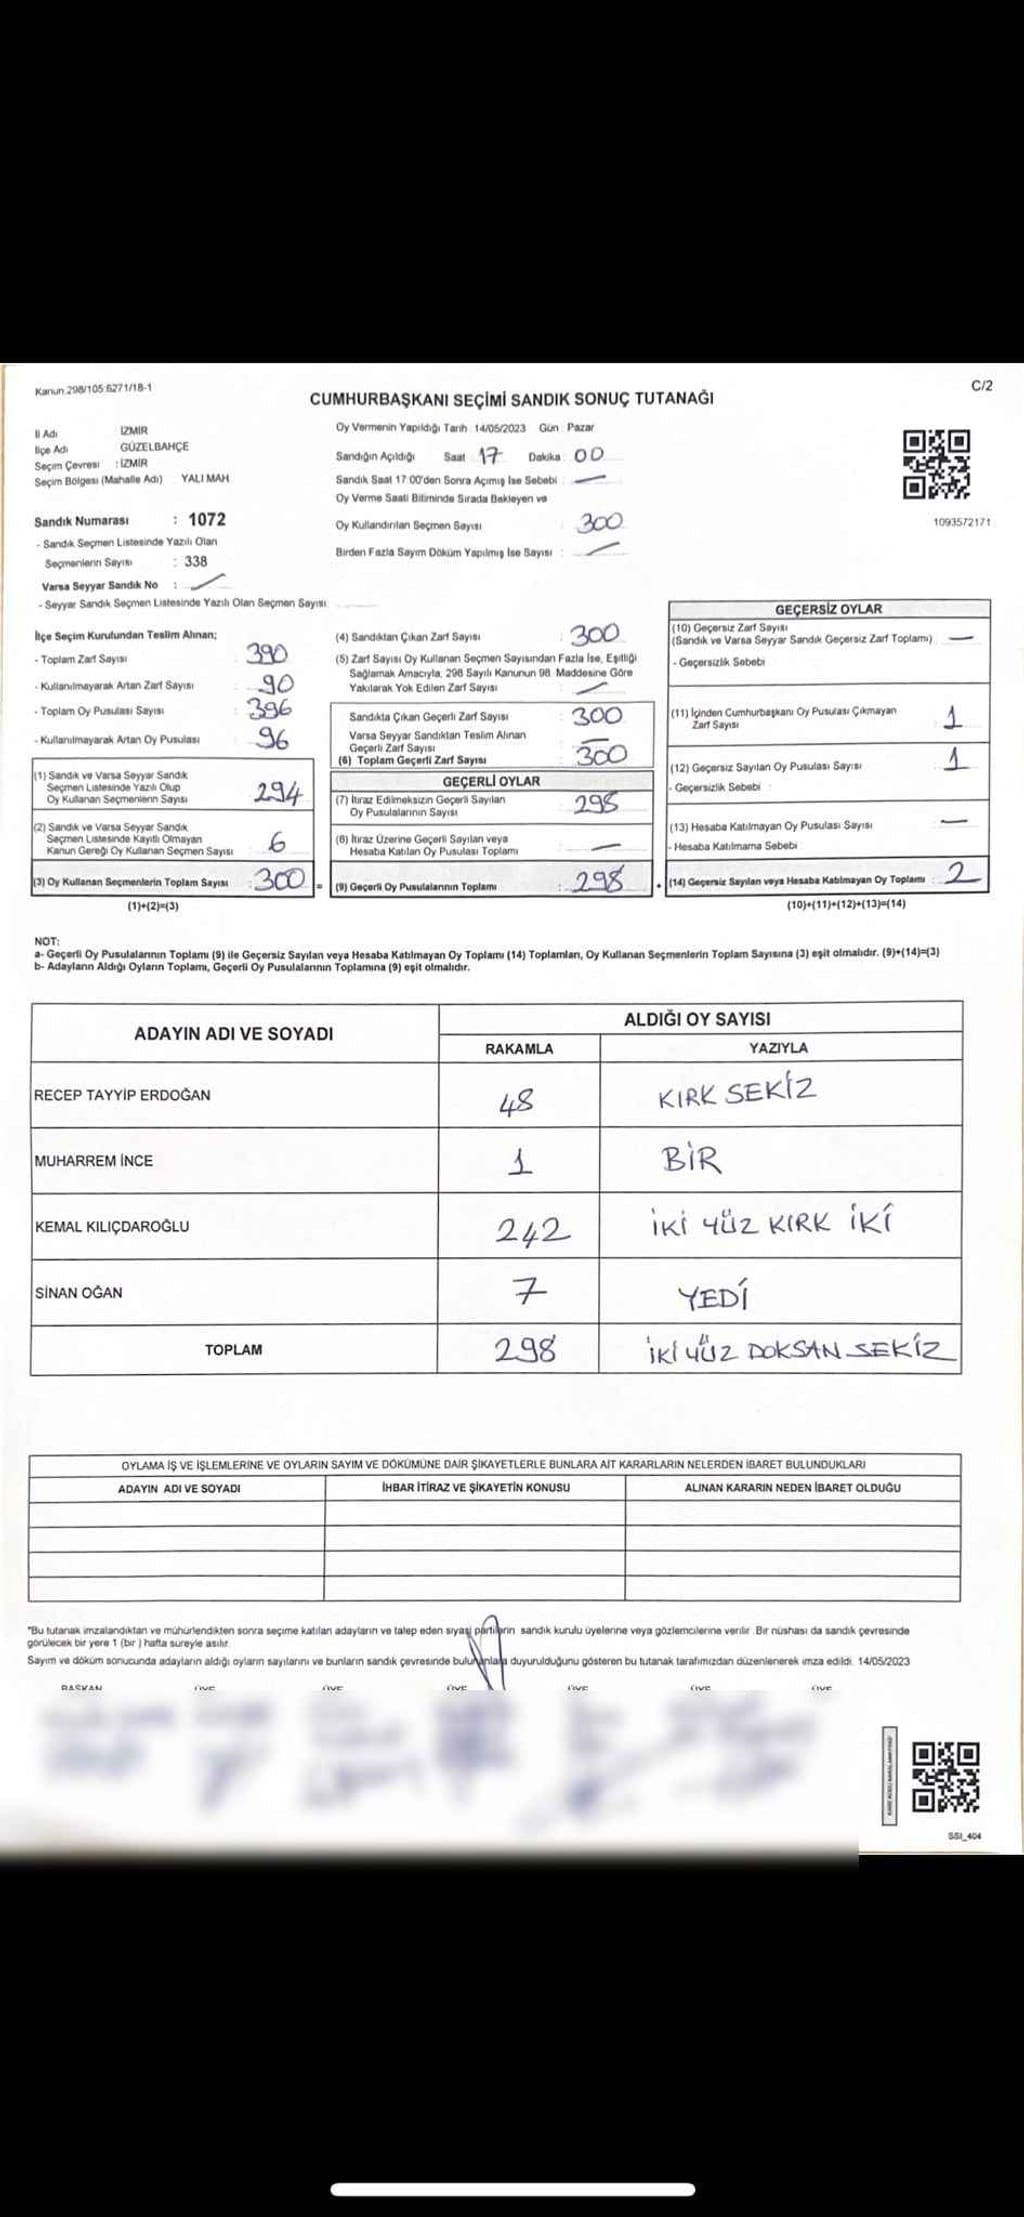 Kanun 298/105 6271/18-1
C/2
CUMHURBAŞKANI SEÇİMİ SANDIK SONUÇ TUTANAĞI
İl Adı : İZMİR
İlçe Adı : GÜZELBAHÇE
Seçim Çevresi : İZMİR
Seçim Bölgesi (Mahalle Adı) : YALI MAH
Sandık Numarası : 1072
- Sandık Seçmen Listesinde Yazılı Olan
Seçmenlerin Sayısı : 338
Varsa Seyyar Sandık No : —
- Seyyar Sandık Seçmen Listesinde Yazılı Olan Seçmen Sayısı:
Oy Vermenin Yapıldığı Tarih :14/05/2023 Gün : Pazar
Sandığın Açıldığı Saat : 17 Dakika : 00
Sandık Saat 17:00'den Sonra Açımış İse Sebebi : —
Oy Verme Saati Bitiminde Sırada Bekleyen ve
Oy Kullandırılan Seçmen Sayısı : 300
Birden Fazla Sayım Döküm Yapılmış İse Sayısı : —
1093572171
İlçe Seçim Kurulundan Teslim Alınan;
- Toplam Zarf Sayısı : 390
- Kullanılmayarak Artan Zarf Sayısı : 90
- Toplam Oy Pusulası Sayısı : 396
- Kullanılmayarak Artan Oy Pusulası : 96
(1) Sandık ve Varsa Seyyar Sandık
Seçmen Listesinde Yazılı Olup
Oy Kullanan Seçmenlerin Sayısı : 294
(2) Sandık ve Varsa Seyyar Sandık
Seçmen Listesinde Kayıtlı Olmayan
Kanun Gereği Oy Kullanan Seçmen Sayısı : 6
(3) Oy Kullanan Seçmenlerin Toplam Sayısı : 300 =
(1)+(2)=(3)
(4) Sandıktan Çıkan Zarf Sayısı : 300
(5) Zarf Sayısı Oy Kullanan Seçmen Sayısından Fazla İse, Eşitliği
Sağlamak Amacıyla, 298 Sayılı Kanunun 98. Maddesine Göre
Yakılarak Yok Edilen Zarf Sayısı : —
Sandıkta Çıkan Geçerli Zarf Sayısı : 300
Varsa Seyyar Sandıktan Teslim Alınan
Geçerli Zarf Sayısı : —
(6) Toplam Geçerli Zarf Sayısı : 300
GEÇERLİ OYLAR
(7) İtiraz Edilmeksizin Geçerli Sayılan
Oy Pusulalarının Sayısı : 298
(8) İtiraz Üzerine Geçerli Sayılan veya
Hesaba Katılan Oy Pusulası Toplamı : —
(9) Geçerli Oy Pusulalarının Toplamı : 298 +
GEÇERSİZ OYLAR
(10) Geçersiz Zarf Sayısı
(Sandık ve Varsa Seyyar Sandık Geçersiz Zarf Toplamı) : —
- Geçersizlik Sebebi
(11) İçinden Cumhurbaşkanı Oy Pusulası Çıkmayan
Zarf Sayısı : 1
(12) Geçersiz Sayılan Oy Pusulası Sayısı : 1
- Geçersizlik Sebebi :
(13) Hesaba Katılmayan Oy Pusulası Sayısı : —
- Hesaba Katılmama Sebebi
(14) Geçersiz Sayılan veya Hesaba Katılmayan Oy Toplamı : 2
(10)+(11)+(12)+(13)=(14)
NOT:
a- Geçerli Oy Pusulalarının Toplamı (9) ile Geçersiz Sayılan veya Hesaba Katılmayan Oy Toplamı (14) Toplamları, Oy Kullanan Seçmenlerin Toplam Sayısına (3) eşit olmalıdır. (9)+(14)=(3)
b- Adayların Aldığı Oyların Toplamı, Geçerli Oy Pusulalarının Toplamına (9) eşit olmalıdır.
ADAYIN ADI VE SOYADI
ALDIĞI OY SAYISI
RAKAMLA YAZIYLA
RECEP TAYYİP ERDOĞAN 48 KIRK SEKİZ
MUHARREM İNCE 1 BİR
KEMAL KILIÇDAROĞLU 242 İKİ YÜZ KIRK İKİ
SİNAN OĞAN 7 YEDİ
TOPLAM 298 İKİ YÜZ DOKSAN SEKİZ
OYLAMA İŞ VE İŞLEMLERİNE VE OYLARIN SAYIM VE DÖKÜMÜNE DAİR ŞİKAYETLERLE BUNLARA AİT KARARLARIN NELERDEN İBARET BULUNDUKLARI
ADAYIN ADI VE SOYADI İHBAR İTİRAZ VE ŞİKAYETİN KONUSU ALINAN KARARIN NEDEN İBARET OLDUĞU
*Bu tutanak imzalandıktan ve mühürlendikten sonra seçime katılan adayların ve talep eden siyasi partilerin sandık kurulu üyelerine veya gözlemcilerine verilir. Bir nüshası da sandık çevresinde
görülecek bir yere 1 (bir) hafta süreyle asılır.
Sayım ve döküm sonucunda adayların aldığı oyların sayılarını ve bunların sandık çevresinde bulunanlara duyurulduğunu gösteren bu tutanak tarafımızdan düzenlenerek imza edildi. 14/05/2023
BAŞKAN ÜYE ÜYE ÜYE ÜYE ÜYE ÜYE
SSI_404